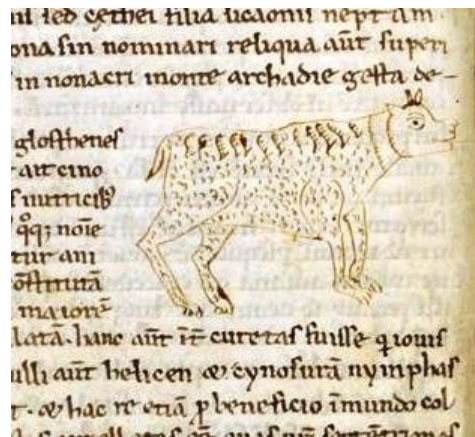 sed cethei filia licaonis nept am
ona sin nominari reliqua aut̄ superi
in nonacri monte archadie gesta de-
glosthenes
ait cino
s nutricib᷒
q̊q; noīe
tur ani
ōstitutā
maiorē
latā. hanc aut̄ īt̄ curetas fuisse q iouis
ulli aut̄ helicen & cynosurā nymphas
t. & hac re etiā p beneficio īmundo col